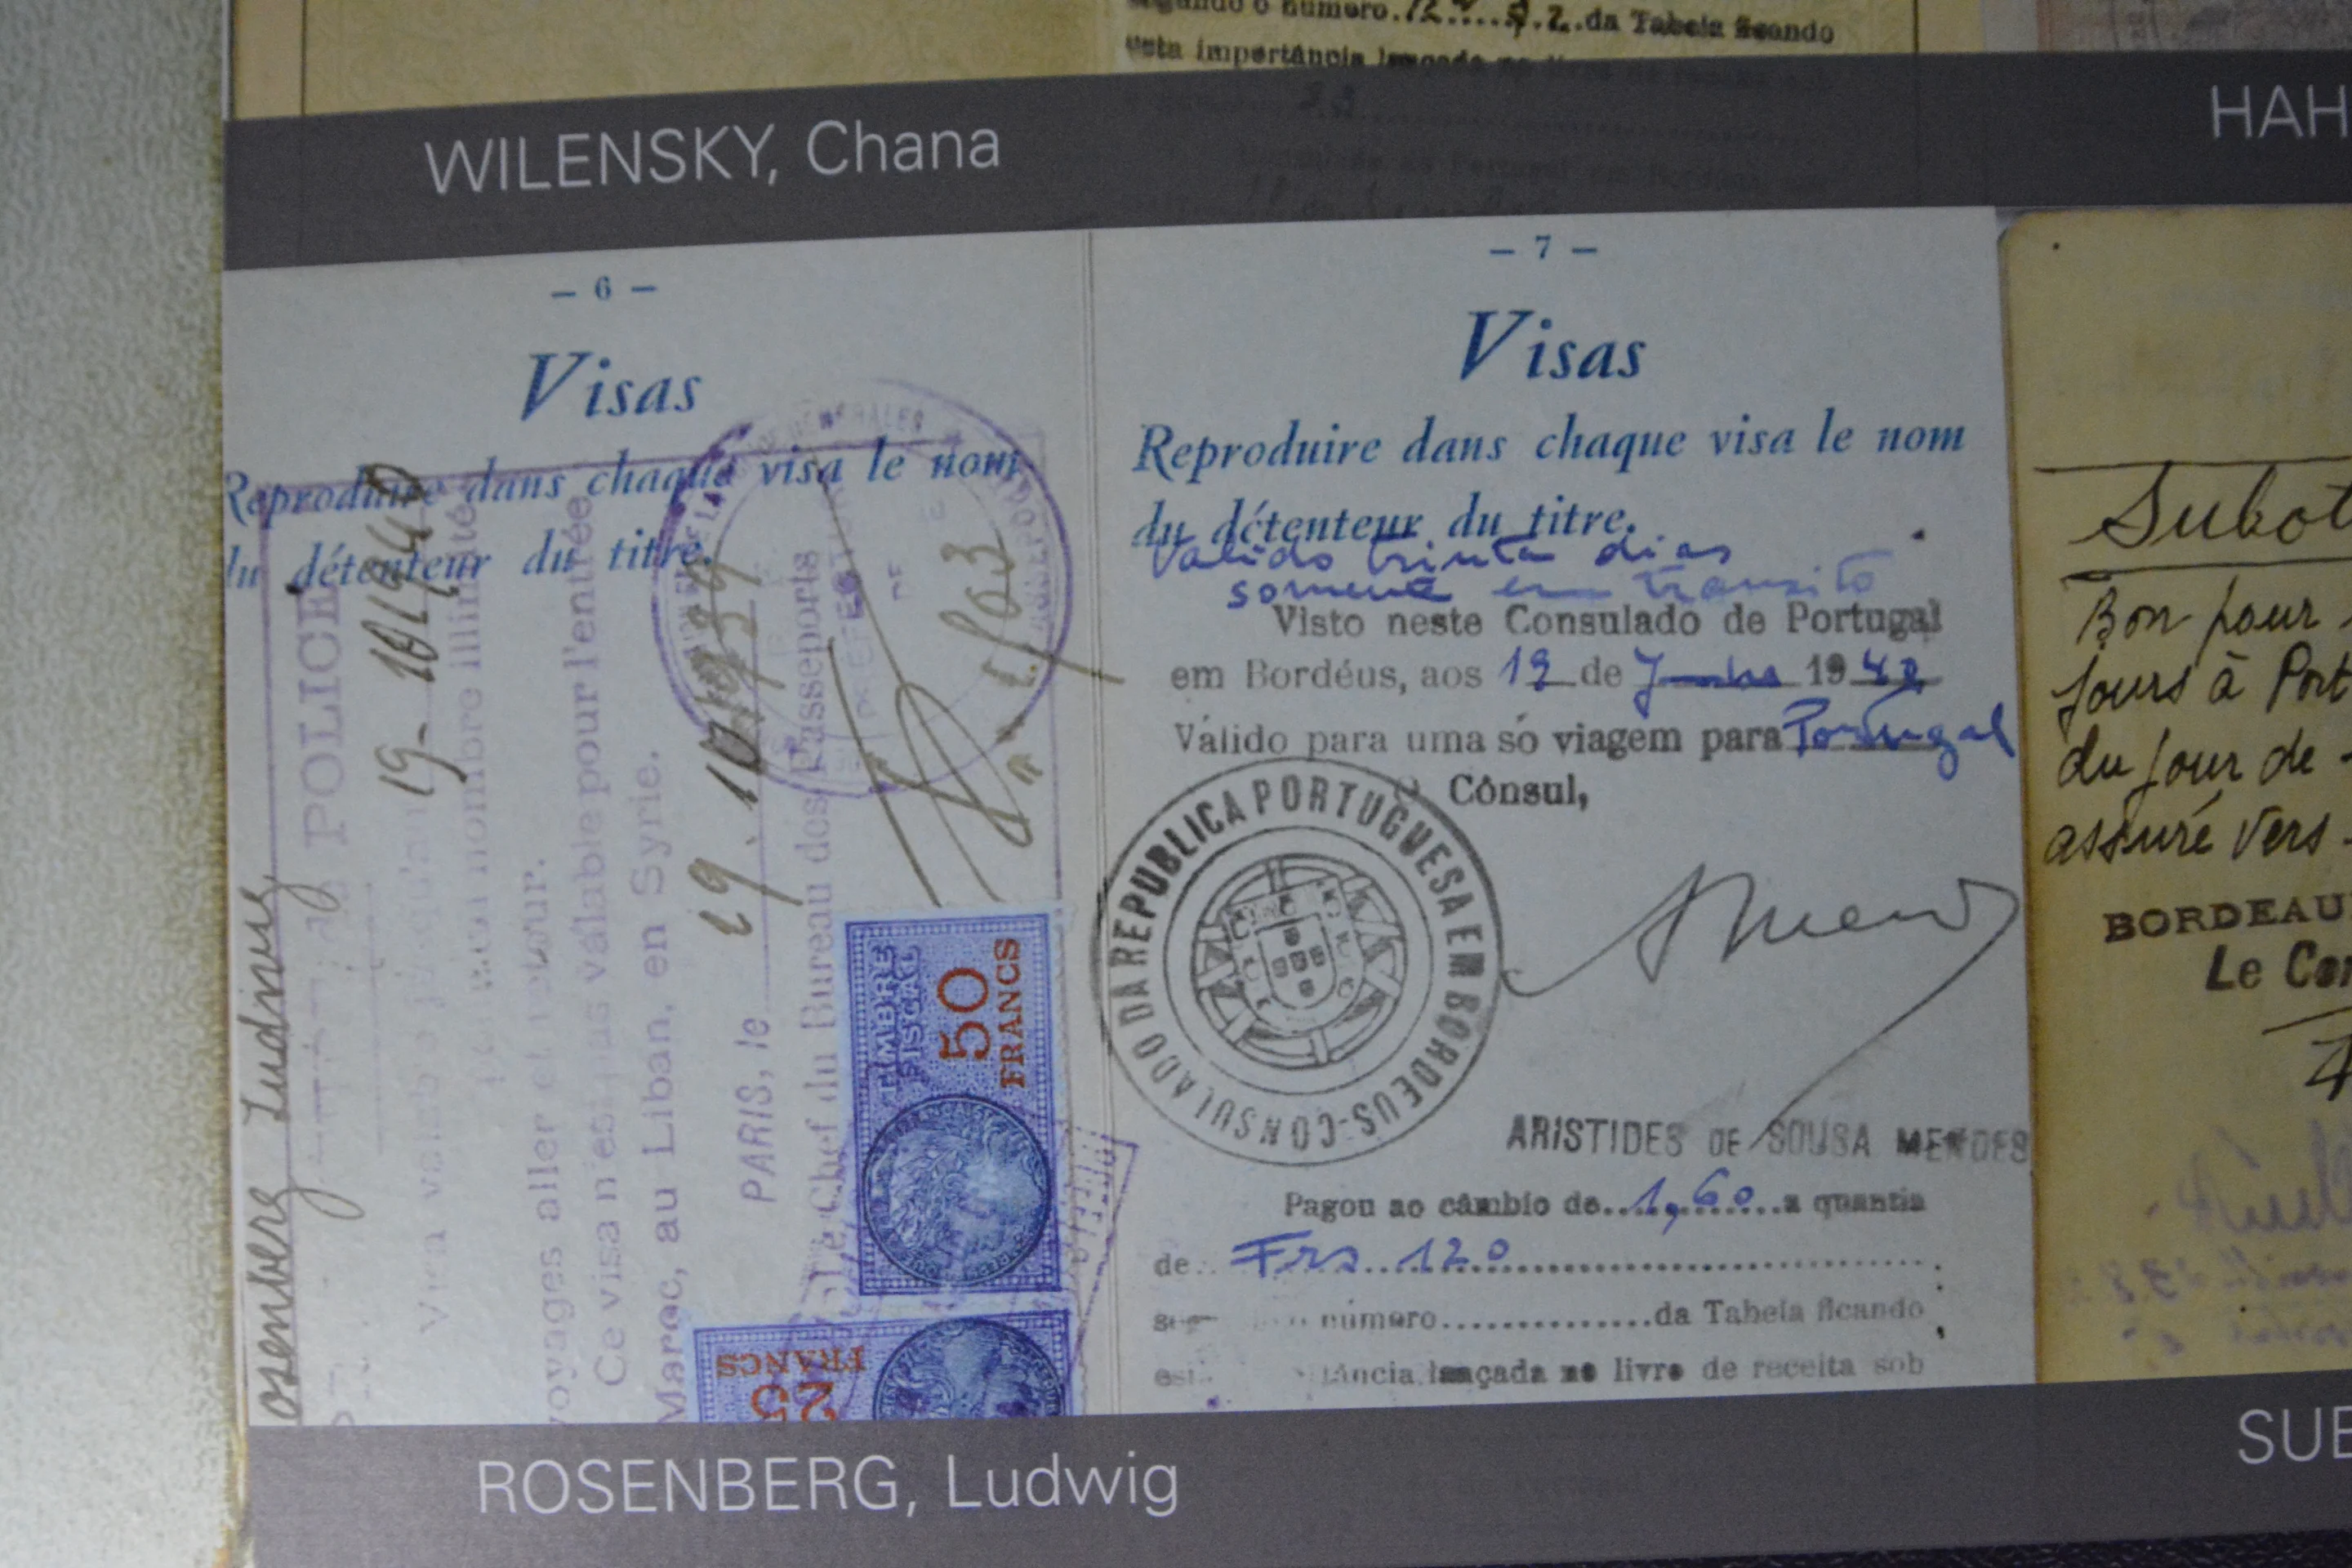 o número 12 da Tabela ficando
esta importância lançada
33
WILENSKY, Chana
HAH
– 6 –
Visas
Reproduire dans chaque visa le nom
du détenteur du titre.
osenberg Ludwig
POLICE
nombre illimité
voyages aller et retour.
Ce visa n'est pas valable pour l'entrée
Maroc, au Liban, en Syrie.
PARIS, le 19.10.1939
Le Chef du Bureau des Passeports
TIMBRE
FISCAL
50
FRANCS
25
FRANCS
– 7 –
Visas
Reproduire dans chaque visa le nom
du détenteur du titre.
Valido trinta dias
somente em transito
Visto neste Consulado de Portugal
em Bordéus, aos 19 de Junho 1940
Válido para uma só viagem para Portugal
O Cônsul,
CONSULADO DA REPUBLICA PORTUGUESA EM BORDEUS
ARISTIDES DE SOUSA MENDES
Pagou ao câmbio de 1,60 a quantia
de Frs 120
número...............da Tabela ficando
lançada no livro de receita sob
Subot
Bon pour
jours à Port
du jour de
assuré vers
BORDEAU
Le Con
ROSENBERG, Ludwig
SUB